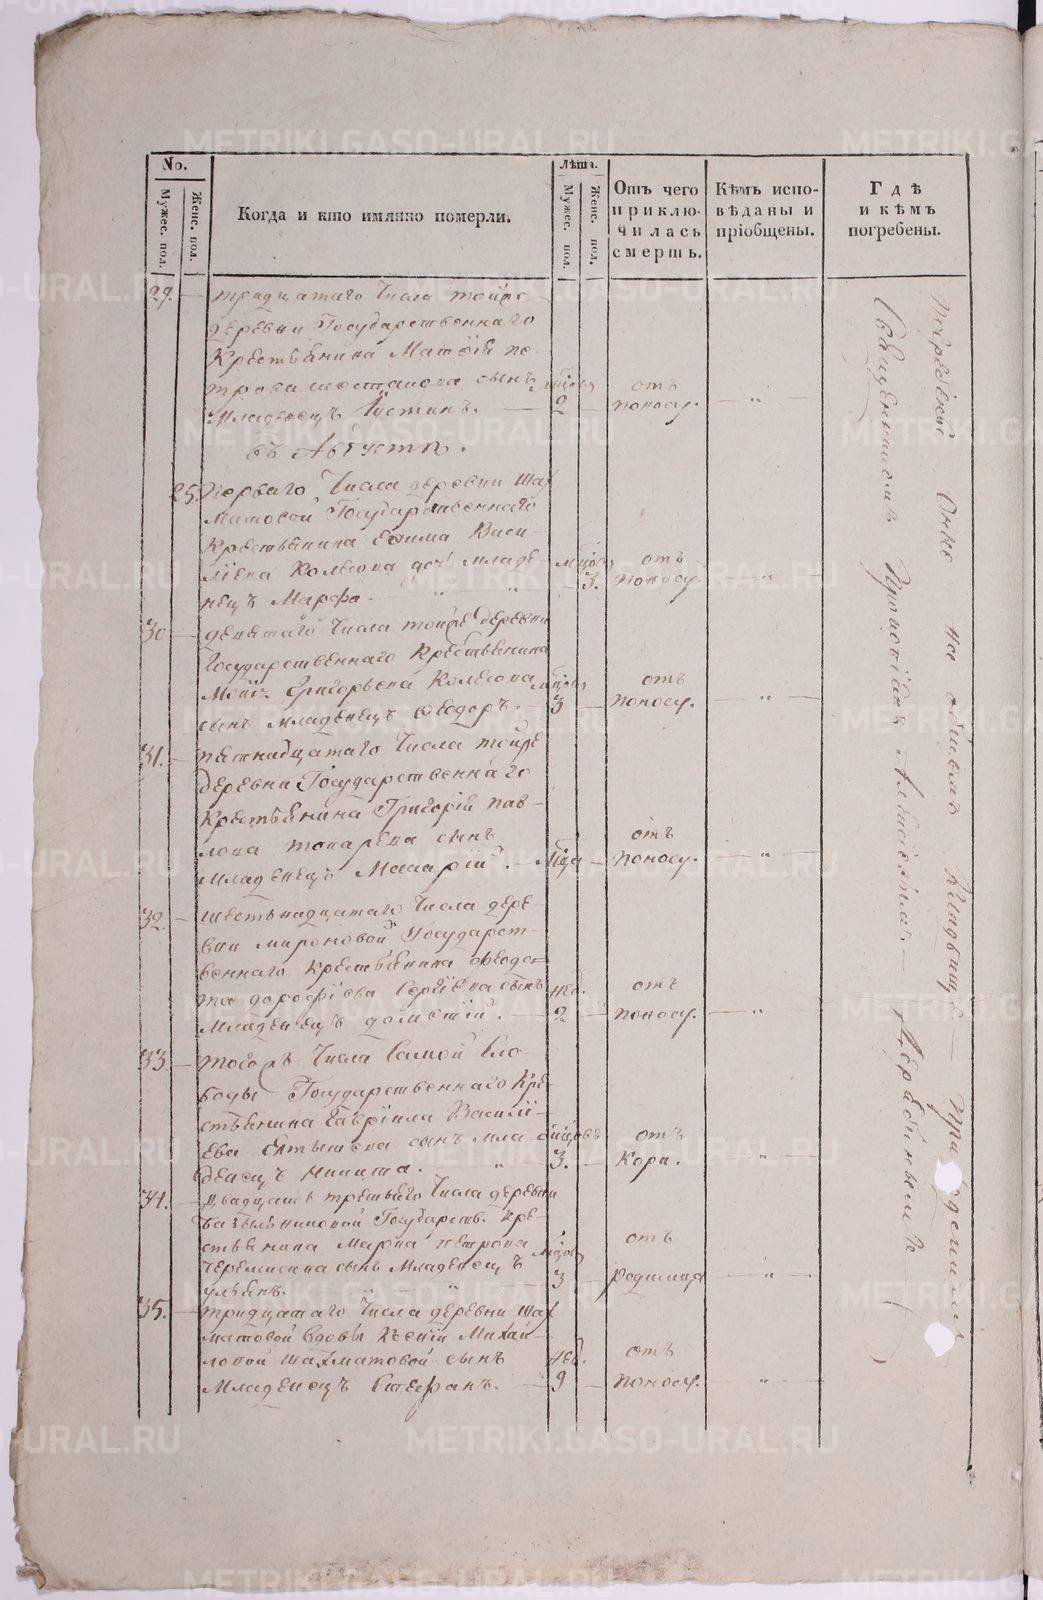 METRIKI.GASO-URAL.RU
No.
Мужес. пол.
Женс. пол.
Когда и кто имянно померли.
Лѣта.
Мужес. пол.
Женс. пол.
Отъ чего приключилась смерть.
Кѣмъ исповѣданы и пріобщены.
Гдѣ и кѣмъ погребены.
29. тридцатаго Числа тойже
деревни Государственнаго
Крестьянина
сынъ
Младенецъ Іустинъ. 2 отъ поносу.
въ Августѣ.
25. перваго Числа деревни Шах
матовой Государственнаго
Крестьянина Ефима Васи-
лієва Колясова дочь младе-
нецъ Марфа. 3. отъ поносу.
30 девятаго Числа тойже деревни
Государственнаго Крестьянина
Григорьева Колясова
сынъ младенецъ Ѳеодоръ. 3 отъ поносу.
31. пятнадцатаго Числа тойже
деревни Государственнаго
Крестьянина Григорія пав-
лова токарева сынъ
Младенецъ Макарій. отъ поносу.
32. шестьнадцатаго Числа дере-
вни мироновой Государст-
веннаго Крестьянина Ѳеодо-
та дорофіева Сергіева сынъ
Младенецъ дометій. нед. 2 отъ поносу.
33 тогожъ Числа Самой Сло-
боды Государственнаго Кре-
стьянина Гавріила Василі-
ева сынъ мла-
денецъ никита. 3. отъ Кори.
34. двадцать третьяго Числа деревни
Государств. Кре-
стьянина Марка петрова
Черемисина сынъ Младенецъ
3 отъ родимца
35. тридцатаго Числа деревни Шах
матовой вдовы Ксеніи Михай-
ловой шахматовой сынъ
Младенецъ Стефанъ. нед. 9 отъ поносу.
на общемъ Кладбищѣ
Священникомъ